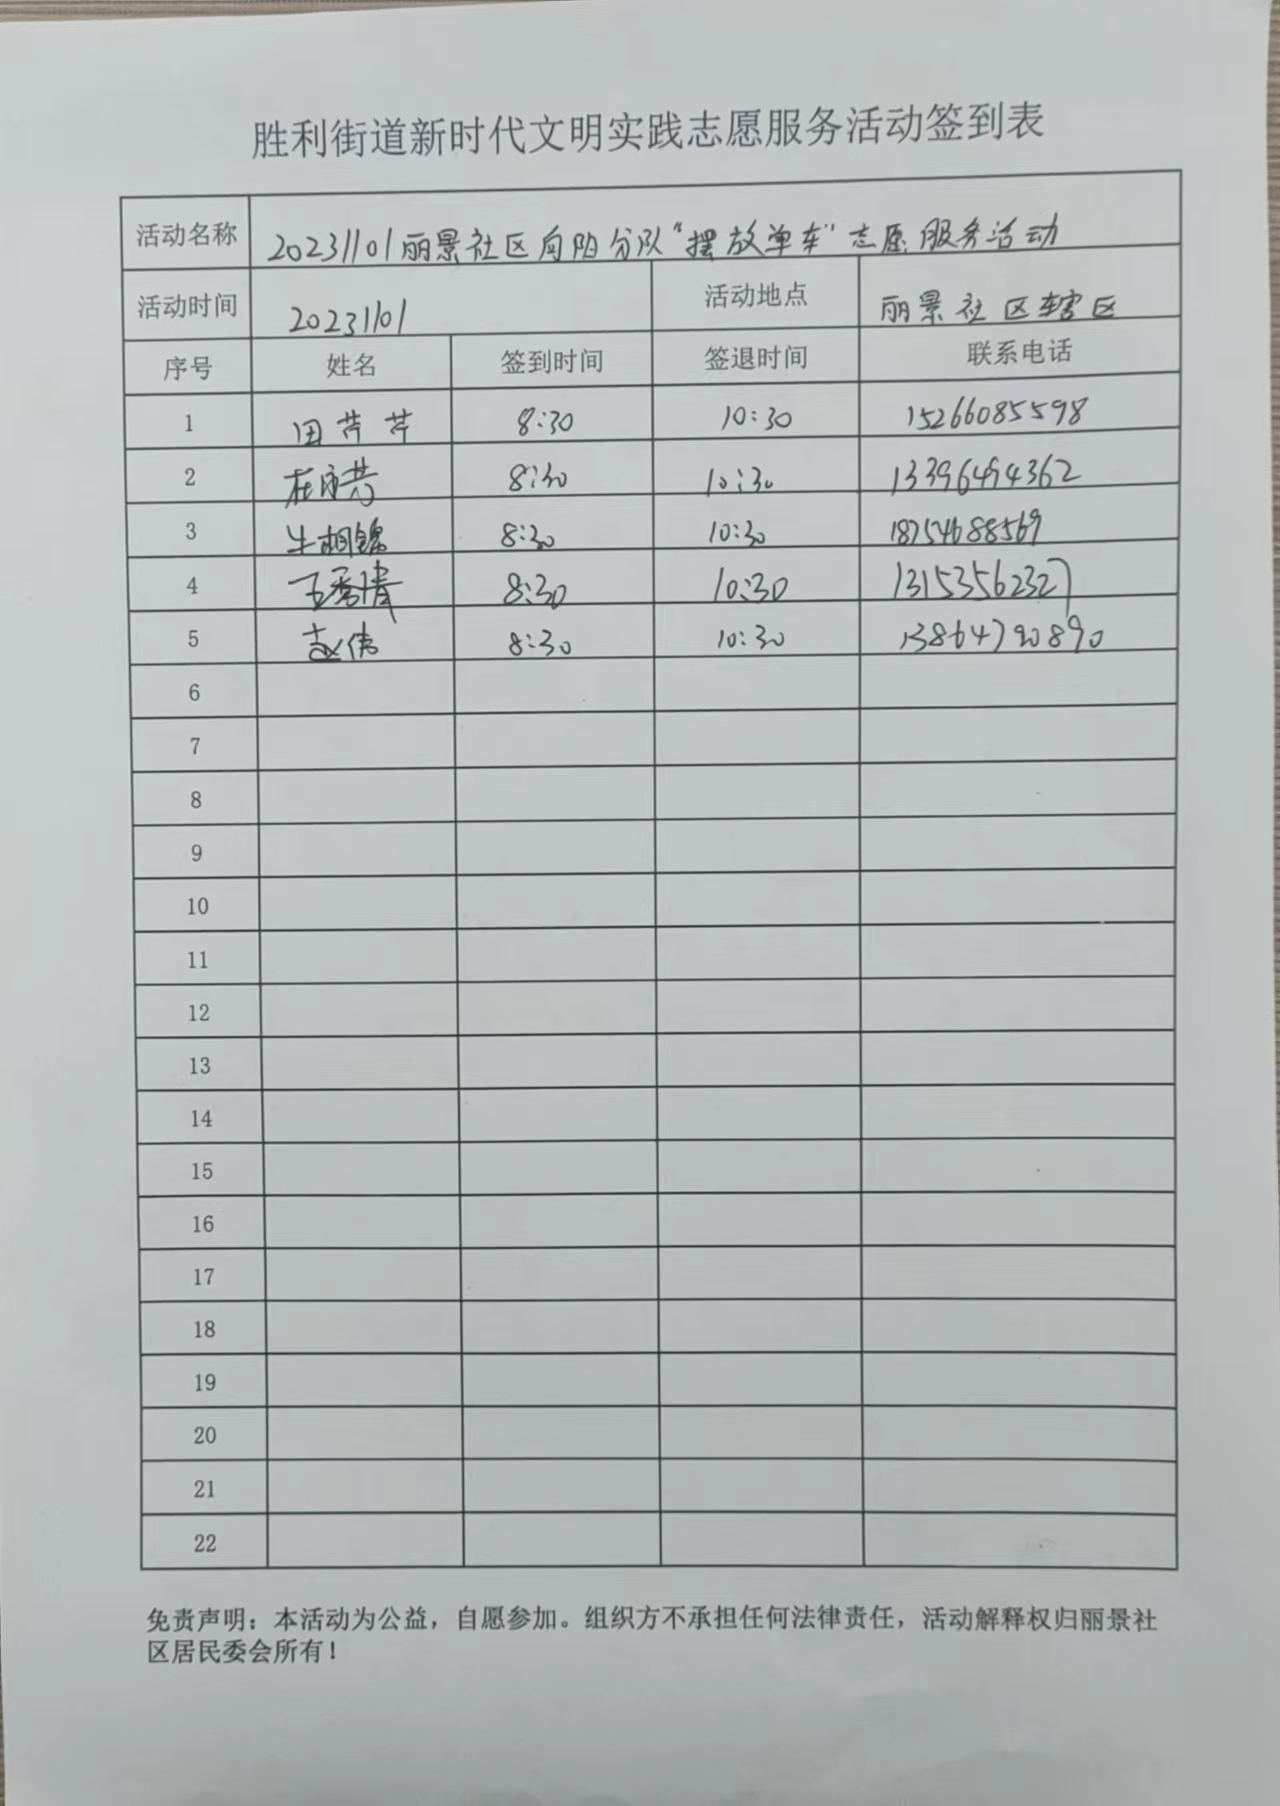 胜利街道新时代文明实践志愿服务活动签到表
活动名称 20231101丽景社区向阳分队“摆放单车”志愿服务活动
活动时间 20231101 活动地点 丽景社区辖区
序号 姓名 签到时间 签退时间 联系电话
1 田芹芹 8:30 10:30 15266085598
2 8:30 10:30 13396494362
3 牛相锦 8:30 10:30 18754688569
4 王秀清 8:30 10:30 13153562327
5 赵伟 8:30 10:30 13864790890
6
7
8
9
10
11
12
13
14
15
16
17
18
19
20
21
22
免责声明：本活动为公益，自愿参加。组织方不承担任何法律责任，活动解释权归丽景社
区居民委会所有！